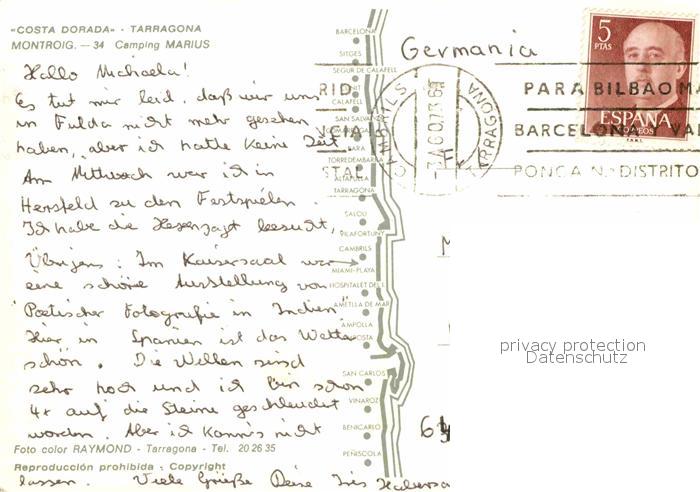 "COSTA DORADA" - TARRAGONA
MONTROIG. — 34 Camping MARIUS
Hallo Michaela!
Es tut mir leid, daß wir uns
in Fulda nicht mehr gesehen
haben, aber ich hatte keine Zeit.
Am Mittwoch war ich in
Hersfeld zu den Festspielen.
Ich habe die Hexenjagt besucht,
Übrigens: Im Kaisersaal war
eine schöne Ausstellung von
"Poetischer Fotografie in Indien".
Hier in Spanien ist das Wetter
schön. Die Wellen sind
sehr hoch und ich bin schon
4x auf die Steine geschleudert
worden. Aber ich kann's nicht
lassen. Viele Grüße Deine Iris
Foto color RAYMOND - Tarragona - Tel. 20 26 35
Reproducción prohibida - Copyright
BARCELONA
SITGES
SEGUR DE CALAFELL
CALAFELL
SAN SALVADOR
BARA
TORREDEMBARRA
ALTAFULLA
TARRAGONA
SALOU
VILAFORTUNY
CAMBRILS
MIAMI-PLAYA
HOSPITALET DEL I.
AMETLLA DE MAR
AMPOLLA
SAN CARLOS
VINAROZ
BENICARLO
PEÑISCOLA
Germania
CAMBRILS
TARRAGONA
PARA BILBAO MA
BARCELONA VA
PONGA N.º DISTRITO
5
PTAS
ESPAÑA
CORREOS
F.N.M.T.
64
privacy protection
Datenschutz